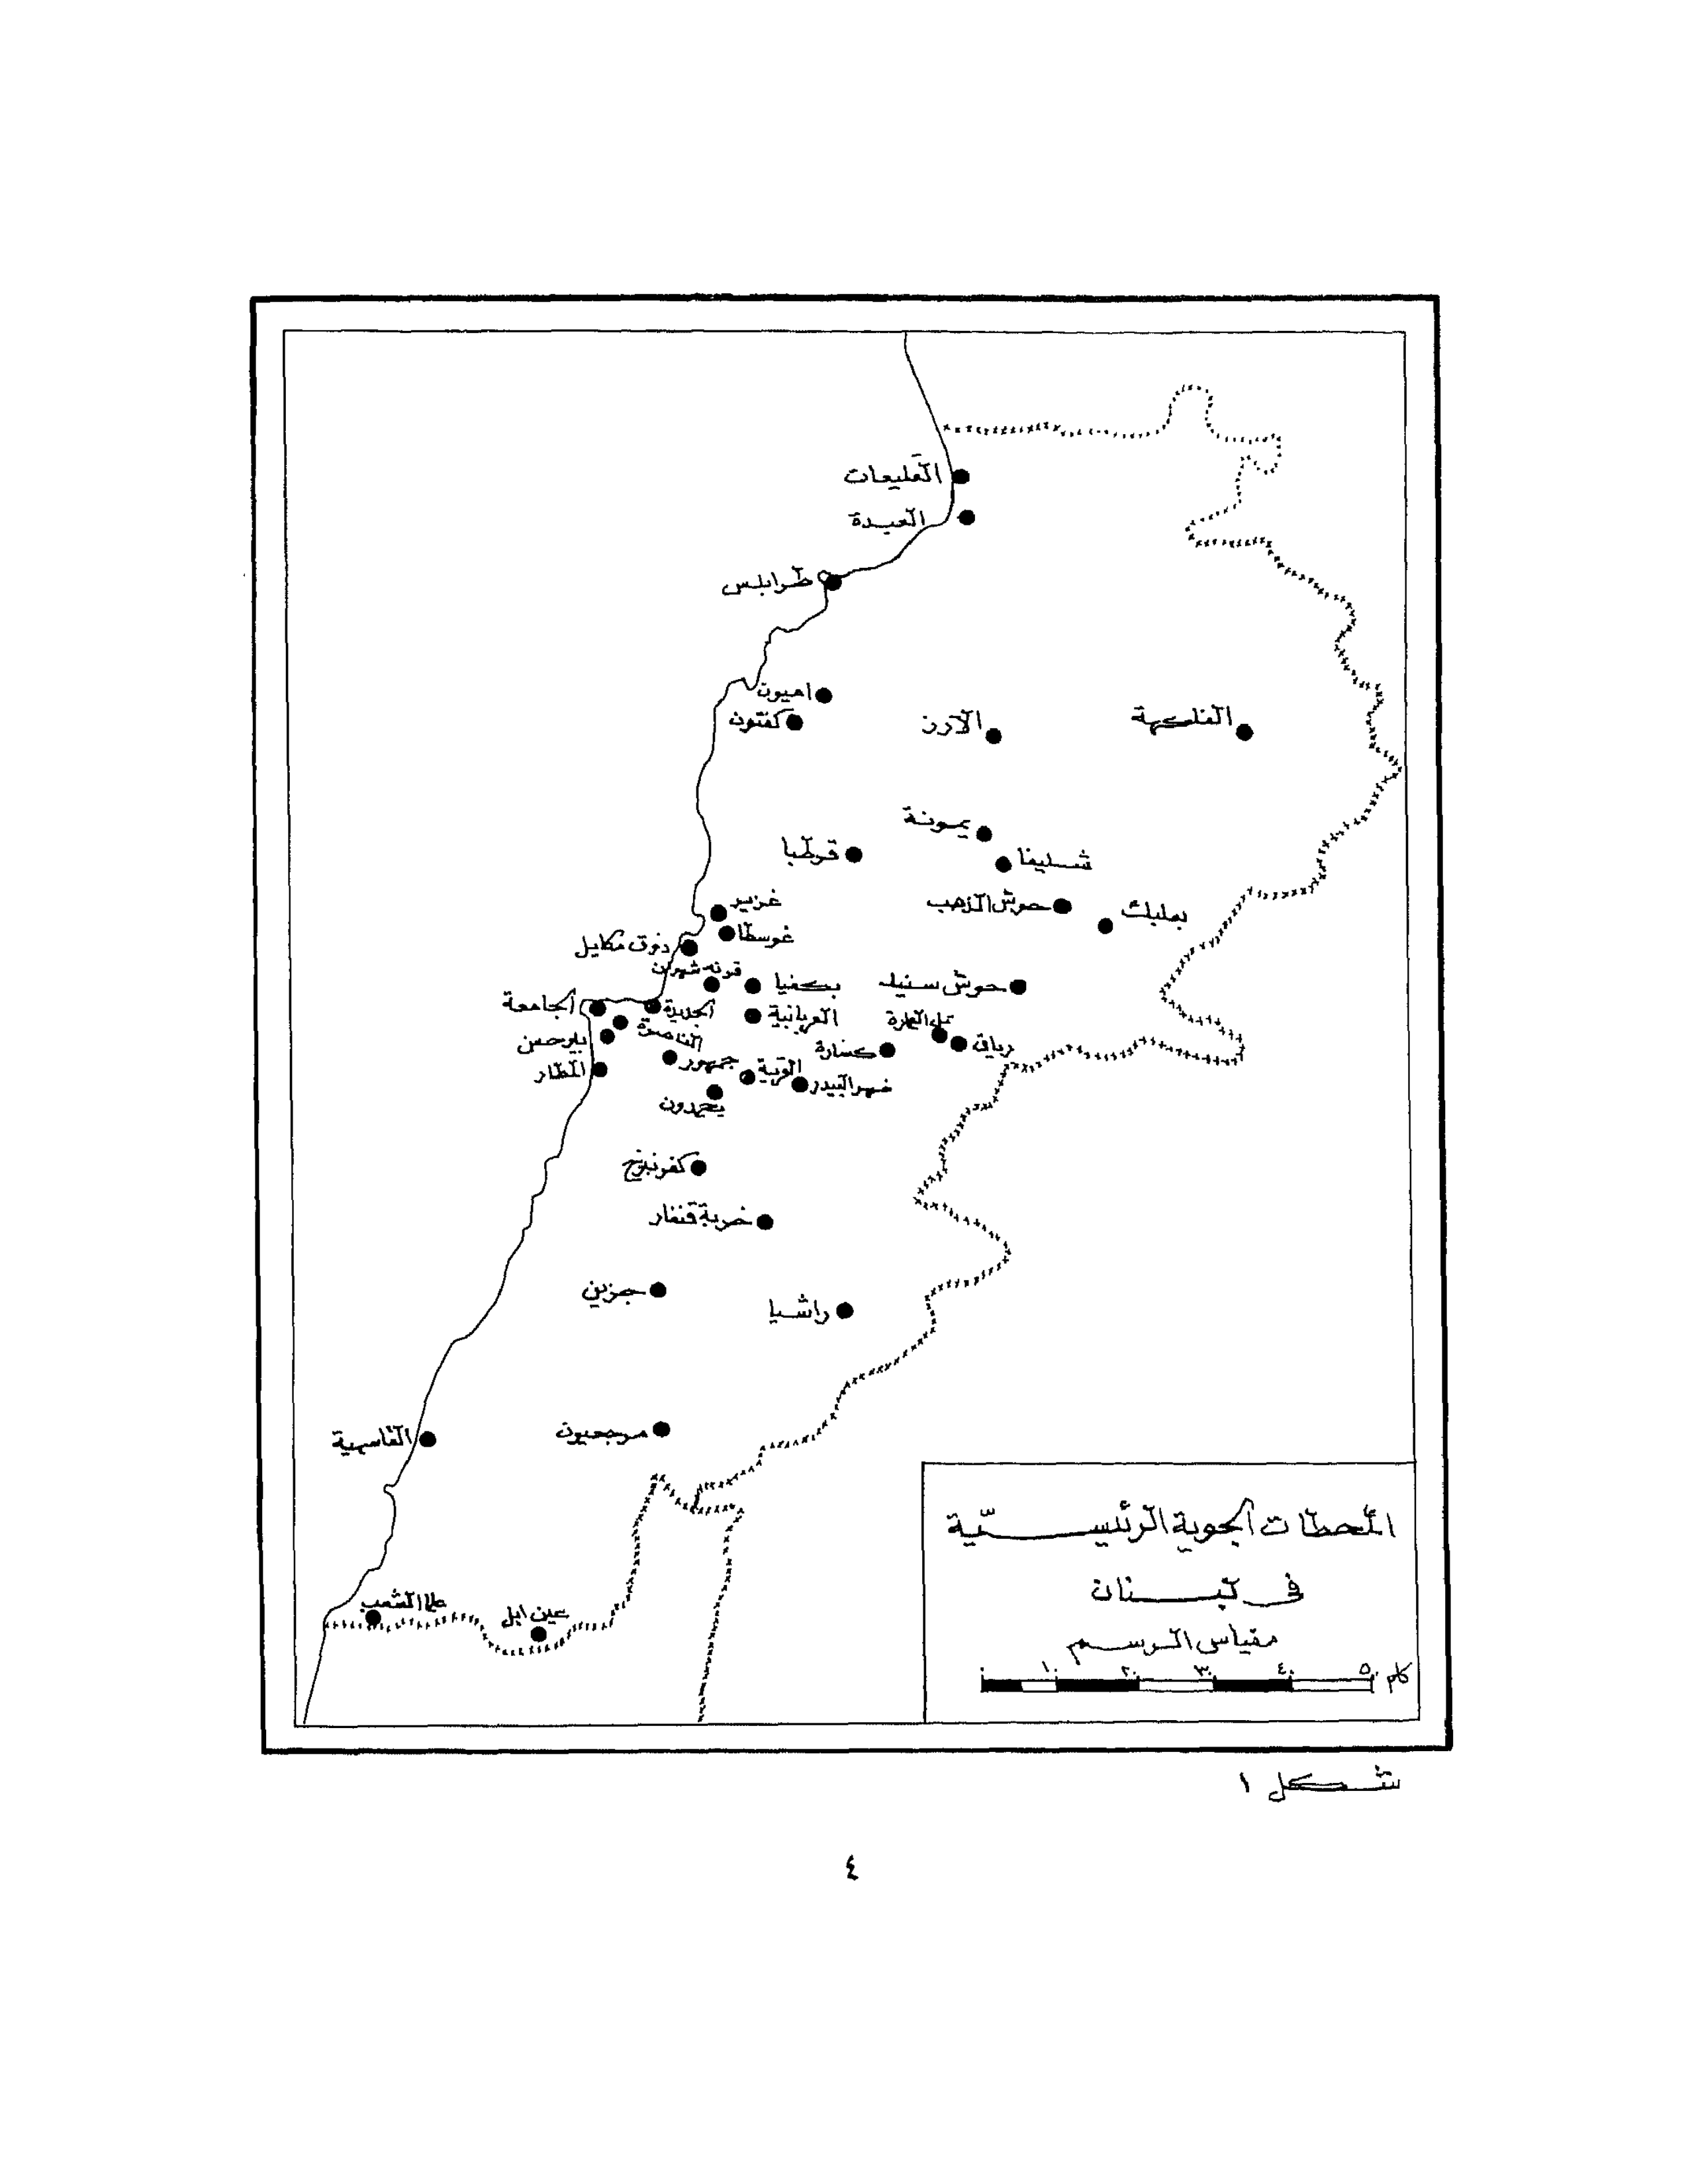 القليعات
العبدة
طرابلس
اميون
كفتون
الارز
الفاكهة
يمونة
قرطبا
شليفا
غزير
حوش الذهب
بعلبك
غوسطا
ذوق مكايل
قرنه شهوان
بكفيا
حوش سنيد
الجامعة
الجديدة
العربانية
تل العمارة
الناصرة
بئر حسن
رياق
كسارة
جمهور
القرية
المطار
ضهر البيدر
بحمدون
كفرنبرخ
خربة قنفار
جزين
راشيا
القاسمية
مرجعيون
علما الشعب
عين ابل
المحطات الجوية الرئيسيّة
في لبنان
مقياس الرسم
٠ ١٠ ٢٠ ٣٠ ٤٠ ٥٠ كلم
شكل ١
٤